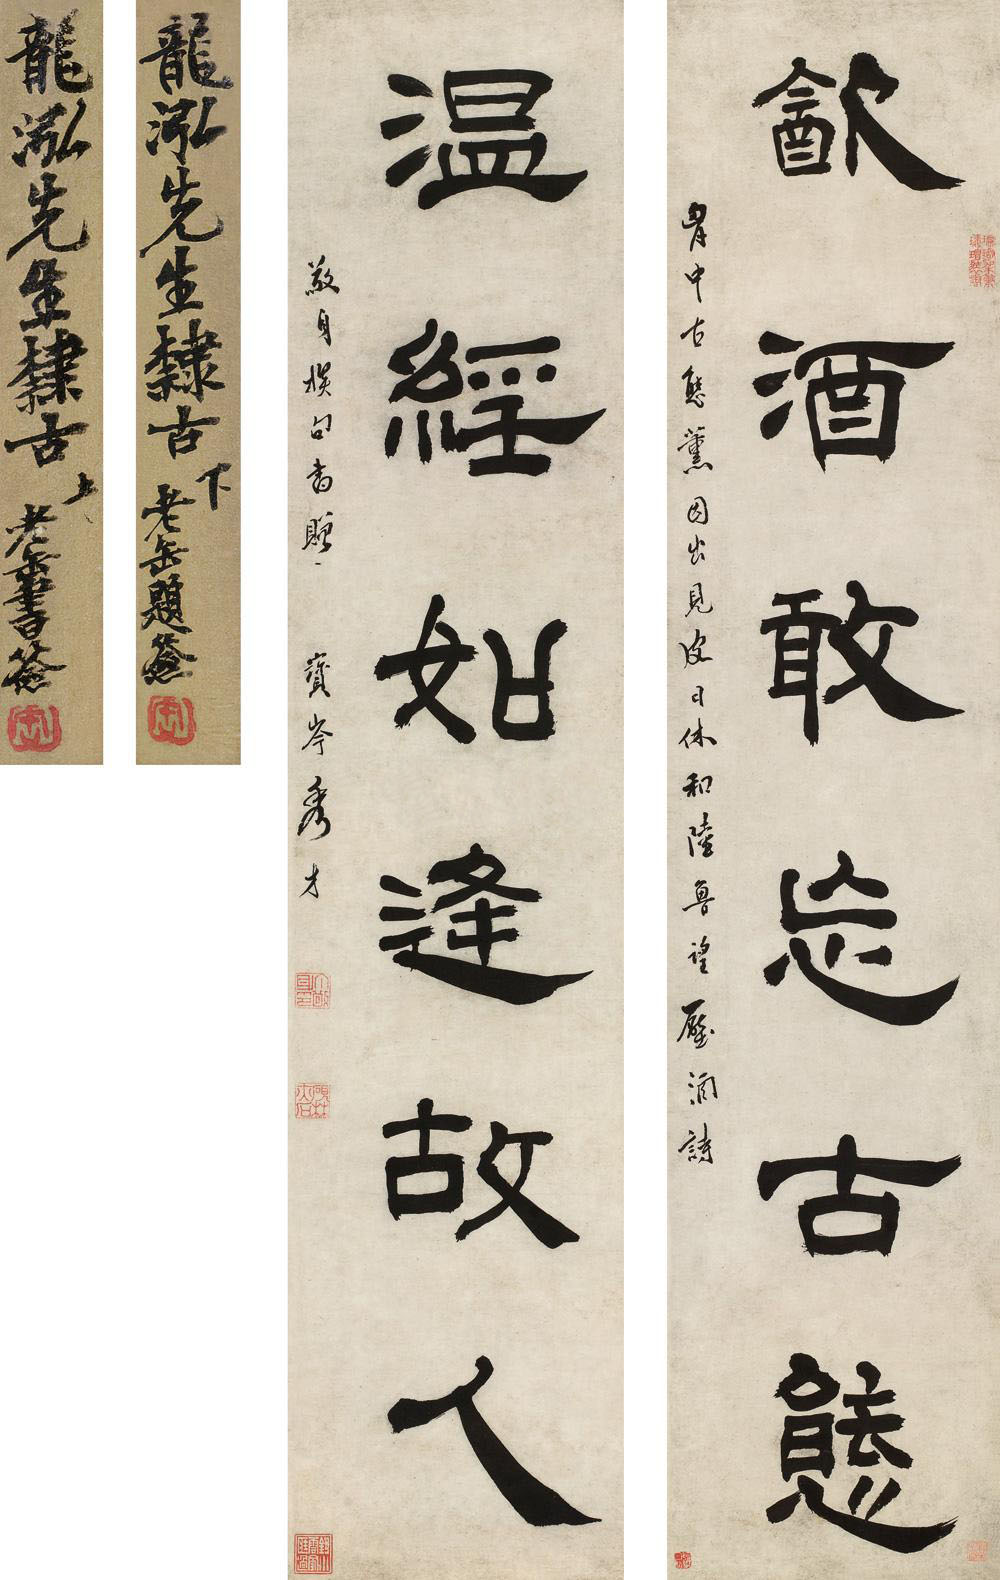 㱃酒敢忘古態
胷中古態薰因出見皮日休和陸魯望壓酒詩
温經如逢故人
敬身撰句書贈
寶岑秀才
龍泓先生隸古下
老缶題簽
龍泓先生隸古上
老缶書簽